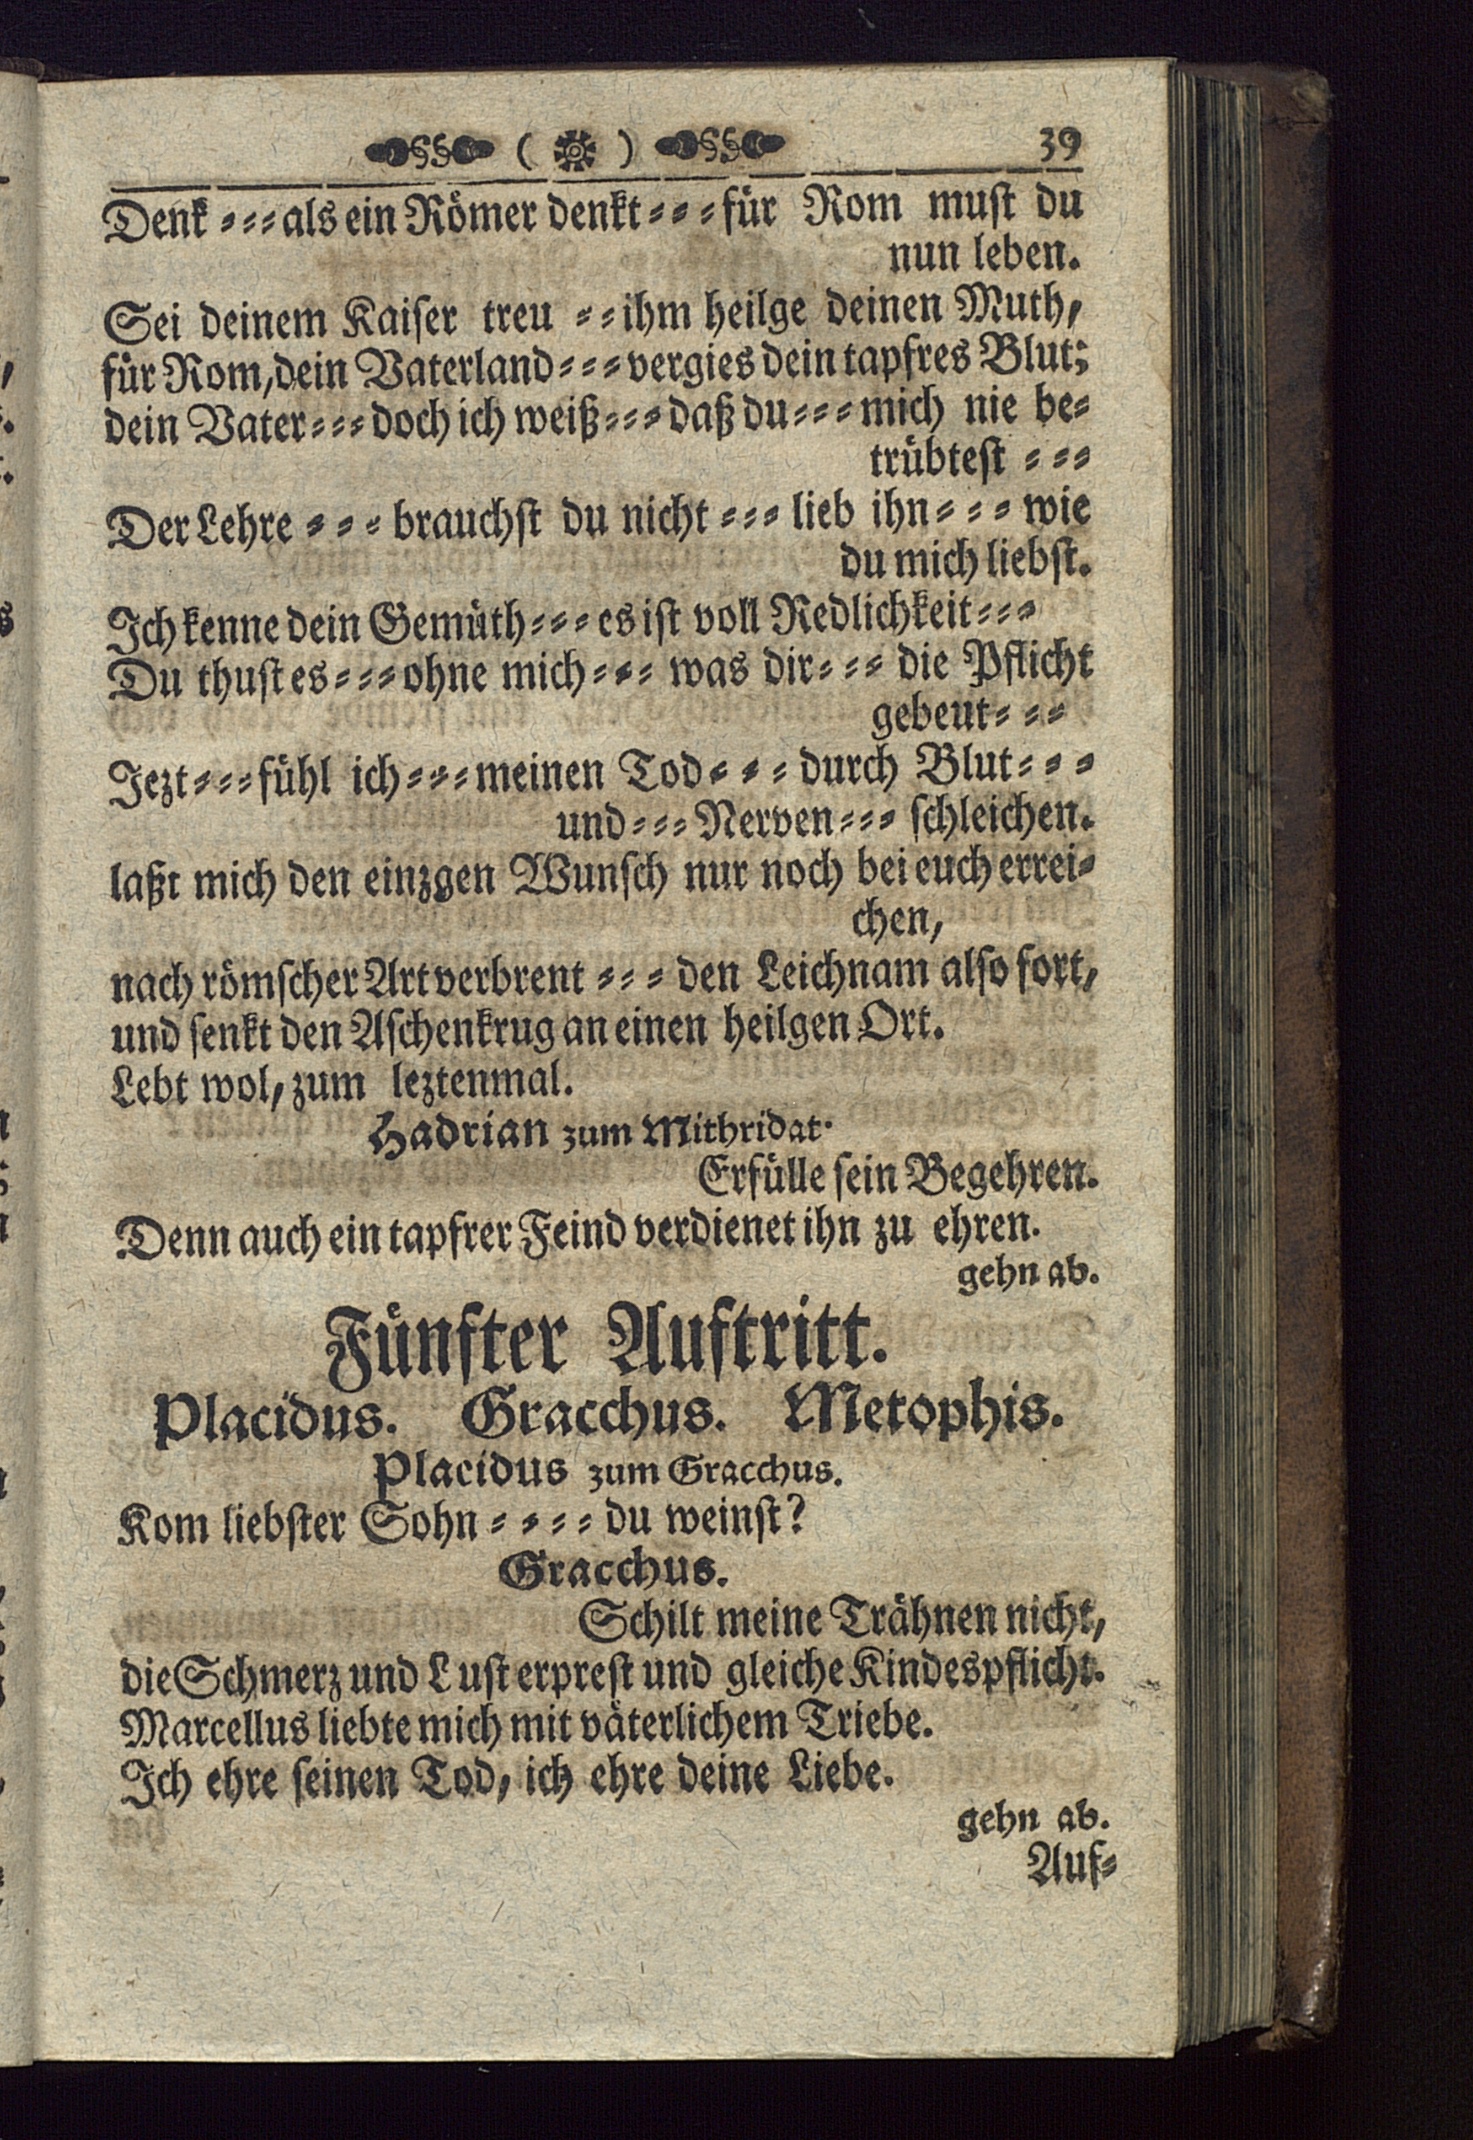 ( ) 39
Denk ⸗⸗⸗ als ein Römer denkt ⸗⸗⸗ für Rom must du
nun leben.
Sei deinem Kaiser treu ⸗⸗ ihm heilge deinen Muth,
für Rom, dein Vaterland ⸗⸗⸗ vergies dein tapfres Blut;
dein Vater ⸗⸗⸗ doch ich weiß ⸗⸗⸗ daß du ⸗⸗⸗ mich nie be⸗
trübtest ⸗⸗⸗
Der Lehre ⸗⸗⸗ brauchst du nicht ⸗⸗⸗ lieb ihn ⸗⸗⸗ wie
du mich liebst.
Ich kenne dein Gemüth ⸗⸗⸗ es ist voll Redlichkeit ⸗⸗⸗
Du thust es ⸗⸗⸗ ohne mich ⸗⸗⸗ was dir ⸗⸗⸗ die Pflicht
gebeut ⸗⸗⸗
Jezt ⸗⸗⸗ fühl ich ⸗⸗⸗ meinen Tod ⸗⸗⸗ durch Blut ⸗⸗⸗
und ⸗⸗⸗ Nerven ⸗⸗⸗ schleichen.
laßt mich den einzgen Wunsch nur noch bei euch errei⸗
chen,
nach römscher Art verbrent ⸗⸗⸗ den Leichnam also fort,
und senkt den Aschenkrug an einen heilgen Ort.
Lebt wol, zum leztenmal.
Hadrian zum Mithridat.
Erfülle sein Begehren.
Denn auch ein tapfrer Feind verdienet ihn zu ehren.
gehn ab.
Fünfter Auftritt.
Placidus. Gracchus. Metophis.
Placidus zum Gracchus.
Kom liebster Sohn ⸗⸗⸗⸗ du weinst?
Gracchus.
Schilt meine Trähnen nicht,
die Schmerz und Lust erprest und gleiche Kindespflicht.
Marcellus liebte mich mit väterlichem Triebe.
Ich ehre seinen Tod, ich ehre deine Liebe.
gehn ab.
Auf⸗